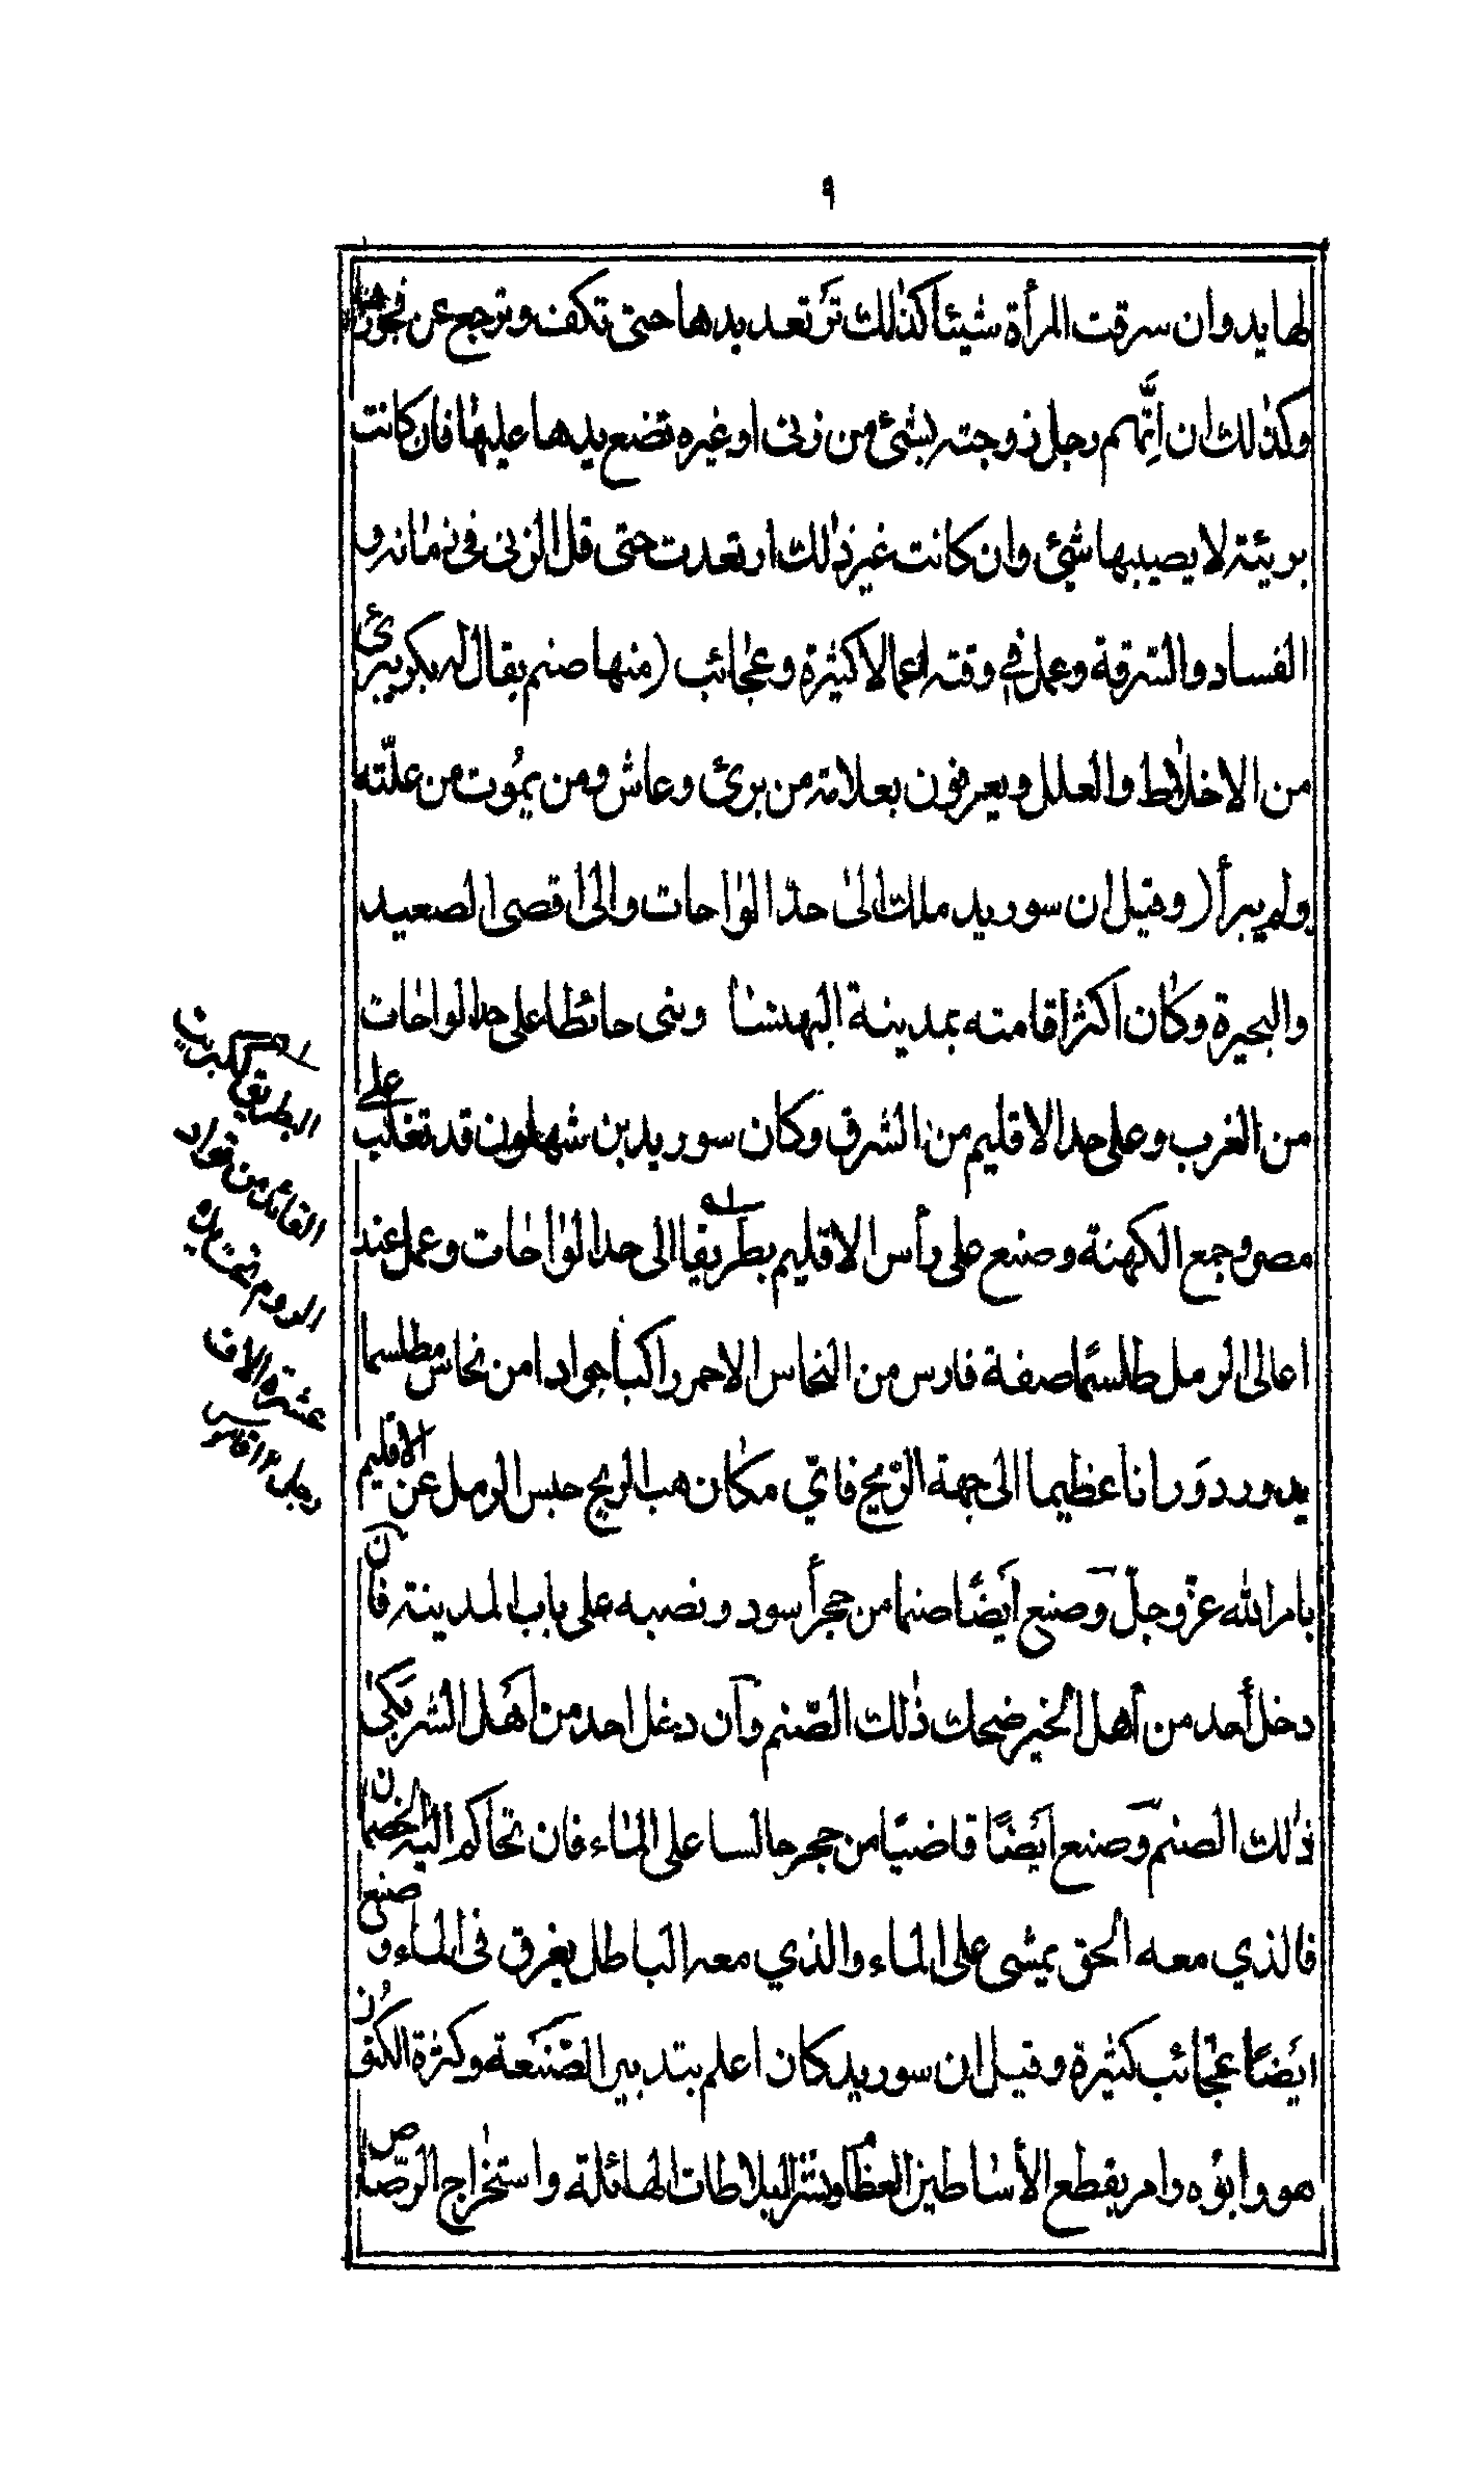 ٩
لها يد وان سرقت المرأة شيئا كذٰلك ترتعد يدها حتى تكف وترجع عن فجورها
وكذٰلك ان اتَّهم رجل زوجته بشئ من زنى او غيره تضع يدها عليها فان كانت
بريئة لا يصيبها شئ وان كانت غير ذٰلك ارتعدت حتى قل الزنى فى زمانه و
الفساد والسّرقة وعمل في وقته اعمالا كثيرة وعجائب (منها صنم يقال له بكر يبرئ
من الاخلاط والعلل ويعرفون بعلامة من برئ وعاش ومن يمُوت من علّته
ولم يبرأ) وقيل ان سوريد ملك الىٰ حدّ الواحات والى اقصى الصعيد
والبحيرة وكان اكثر اقامته بمدينة البهنسا وبنى حائطا على حد الواحات
من الغرب وعلى حد الاقليم من الشرق وكان سوريد بن شهلون قد تغلب على
مصر وجمع الكهنة وصنع على رأس الاقليم بطريقا الى حد الواحات وعمل عند
اعالى الرمل طلسمًا صفة فارس من النحاس الاحمر راكبا جوادا من نحاس مطلسما
يدور دَورانا عظيما الى جهة الرّيح فاتي مكان هب الريح حبس الرمل عن الاقليم
بامر الله عزّ وجلّ وصنع ايضًا صنما من حجر أسود ونصبه على باب المدينة فان
دخل أحد من أهل الخير ضحك ذٰلك الصّنم وان دخل احد من اهل الشر بَكىٰ
ذٰلك الصنم وصنع ايضًا قاضيًا من حجر جالسا على الماء فان تحاكم اليه الخصمان
فالذي معه الحق يمشى على الماء والذي معه الباطل يغرق فى الماء و صنع
ايضًا عجائب كثيرة وقيل ان سوريد كان اعلم بتدبير الصّنعة وكثرة الكنوز
هو وابوه وامر بقطع الأساطين العظام ونشر البلاطات الهائلة واستخراج الرّصاص
له
البطريق ككبريت
القائد من قواد
الروم تحت يده
عشرة الاف
رجل ١٢ قاموس